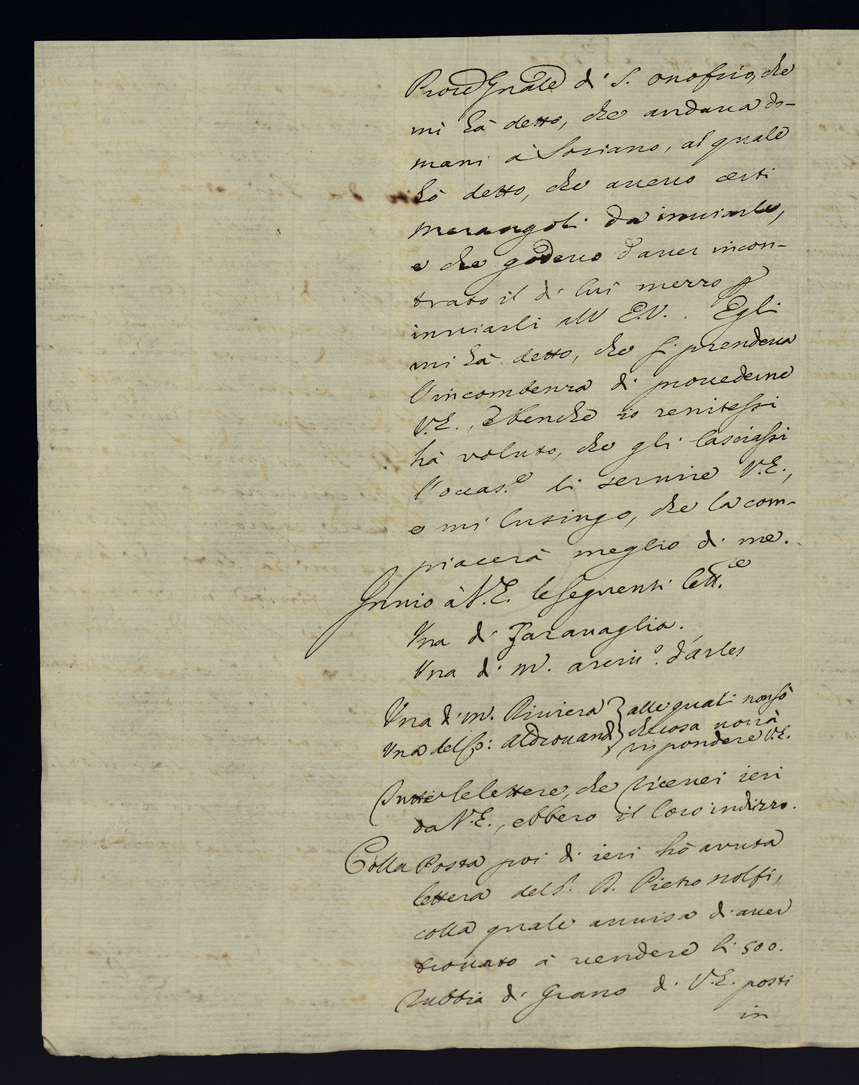 Proc.e Gnãle di S. Onofrio, che
mi hà detto, che andava do-
mani à Soriano, al quale
hò detto, che avevo certi
merangoli da inviarle,
e che godevo d'aver incon-
trato il di lui mezzo p
inviarli all' E.V. . Egli
mi hà detto, che si prendeva
l'incombenza di provederne
V.E., e benche io renitessi
hà voluto, che gli lasciassi
l'occas.e di servire V.E.,
e mi lusingo, che la com-
piacerà meglio di me.
Invio à V.E. le seguenti lett.e
Una di Zaravaglia.
Una di M. Arciv.o d'Arles
Una di M. Riviera } alle quali non sò
Una del Sp: Aldrovandi } che cosa vorrà
rispondere V.E.
Tutte le lettere, che ricevei ieri
da V.E., ebbero il loro indirizzo.
Colla Posta poi di ieri hò avuta
lettera del S. D. Pietro Nolfi,
colla quale avvisa di aver
trovato à vendere li 500.
rubbia di Grano di V.E. posti
in